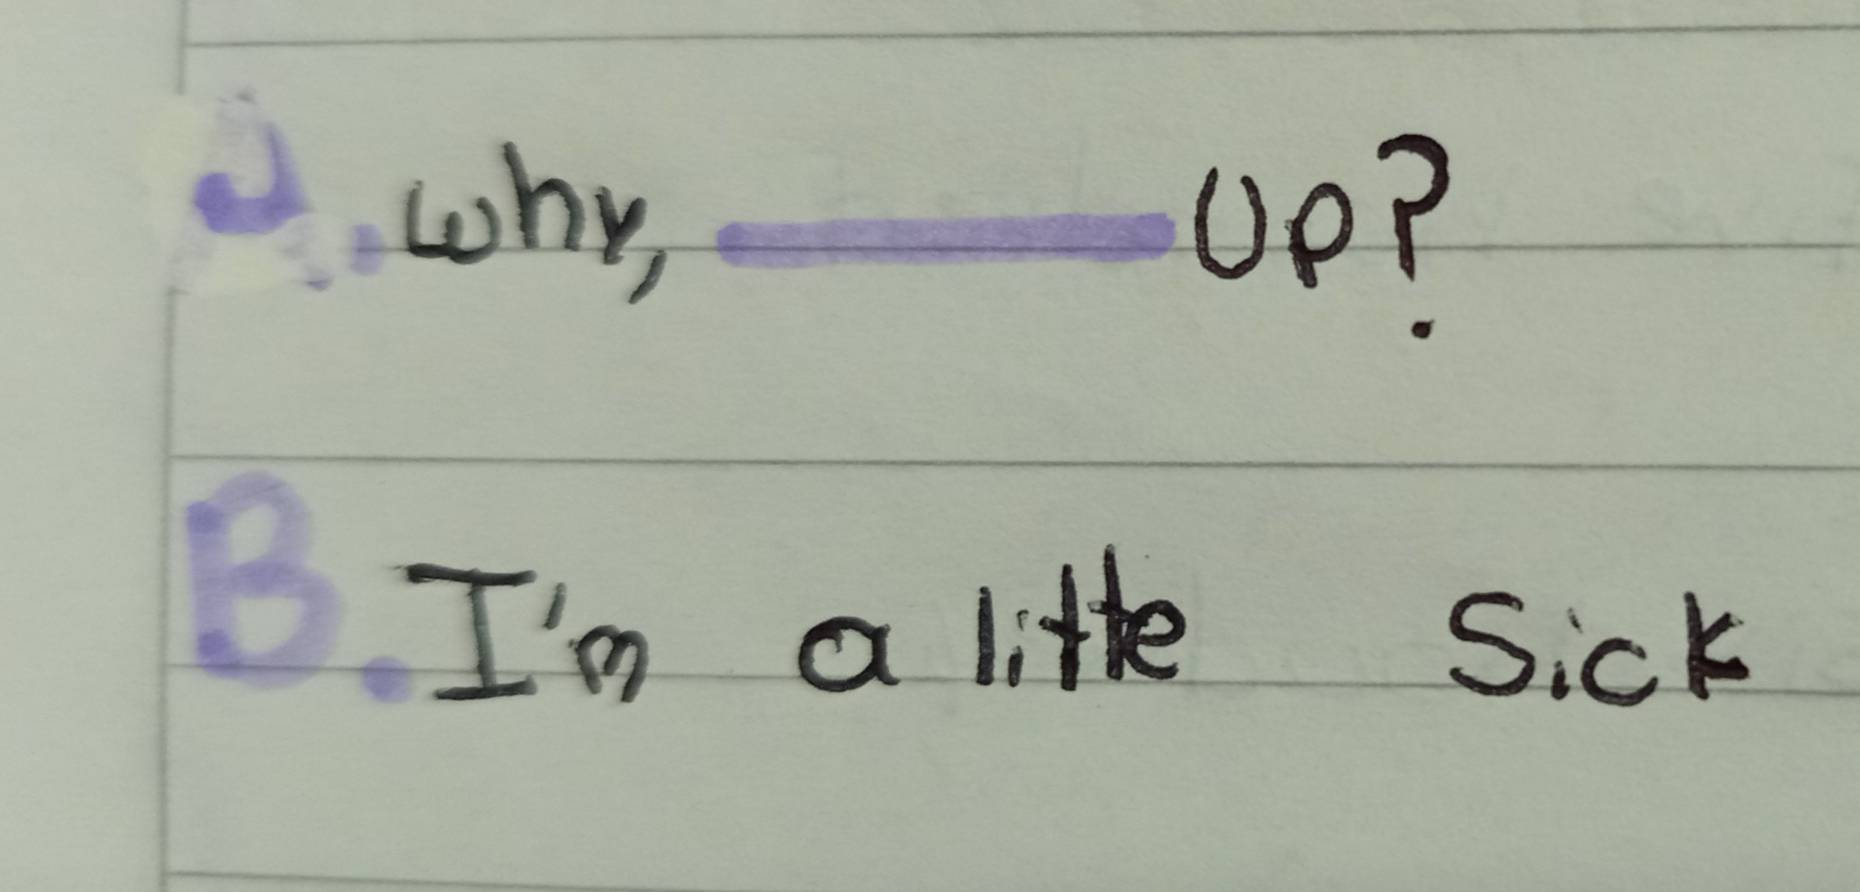 A. why, ___ Up?
B. I'm a little Sick